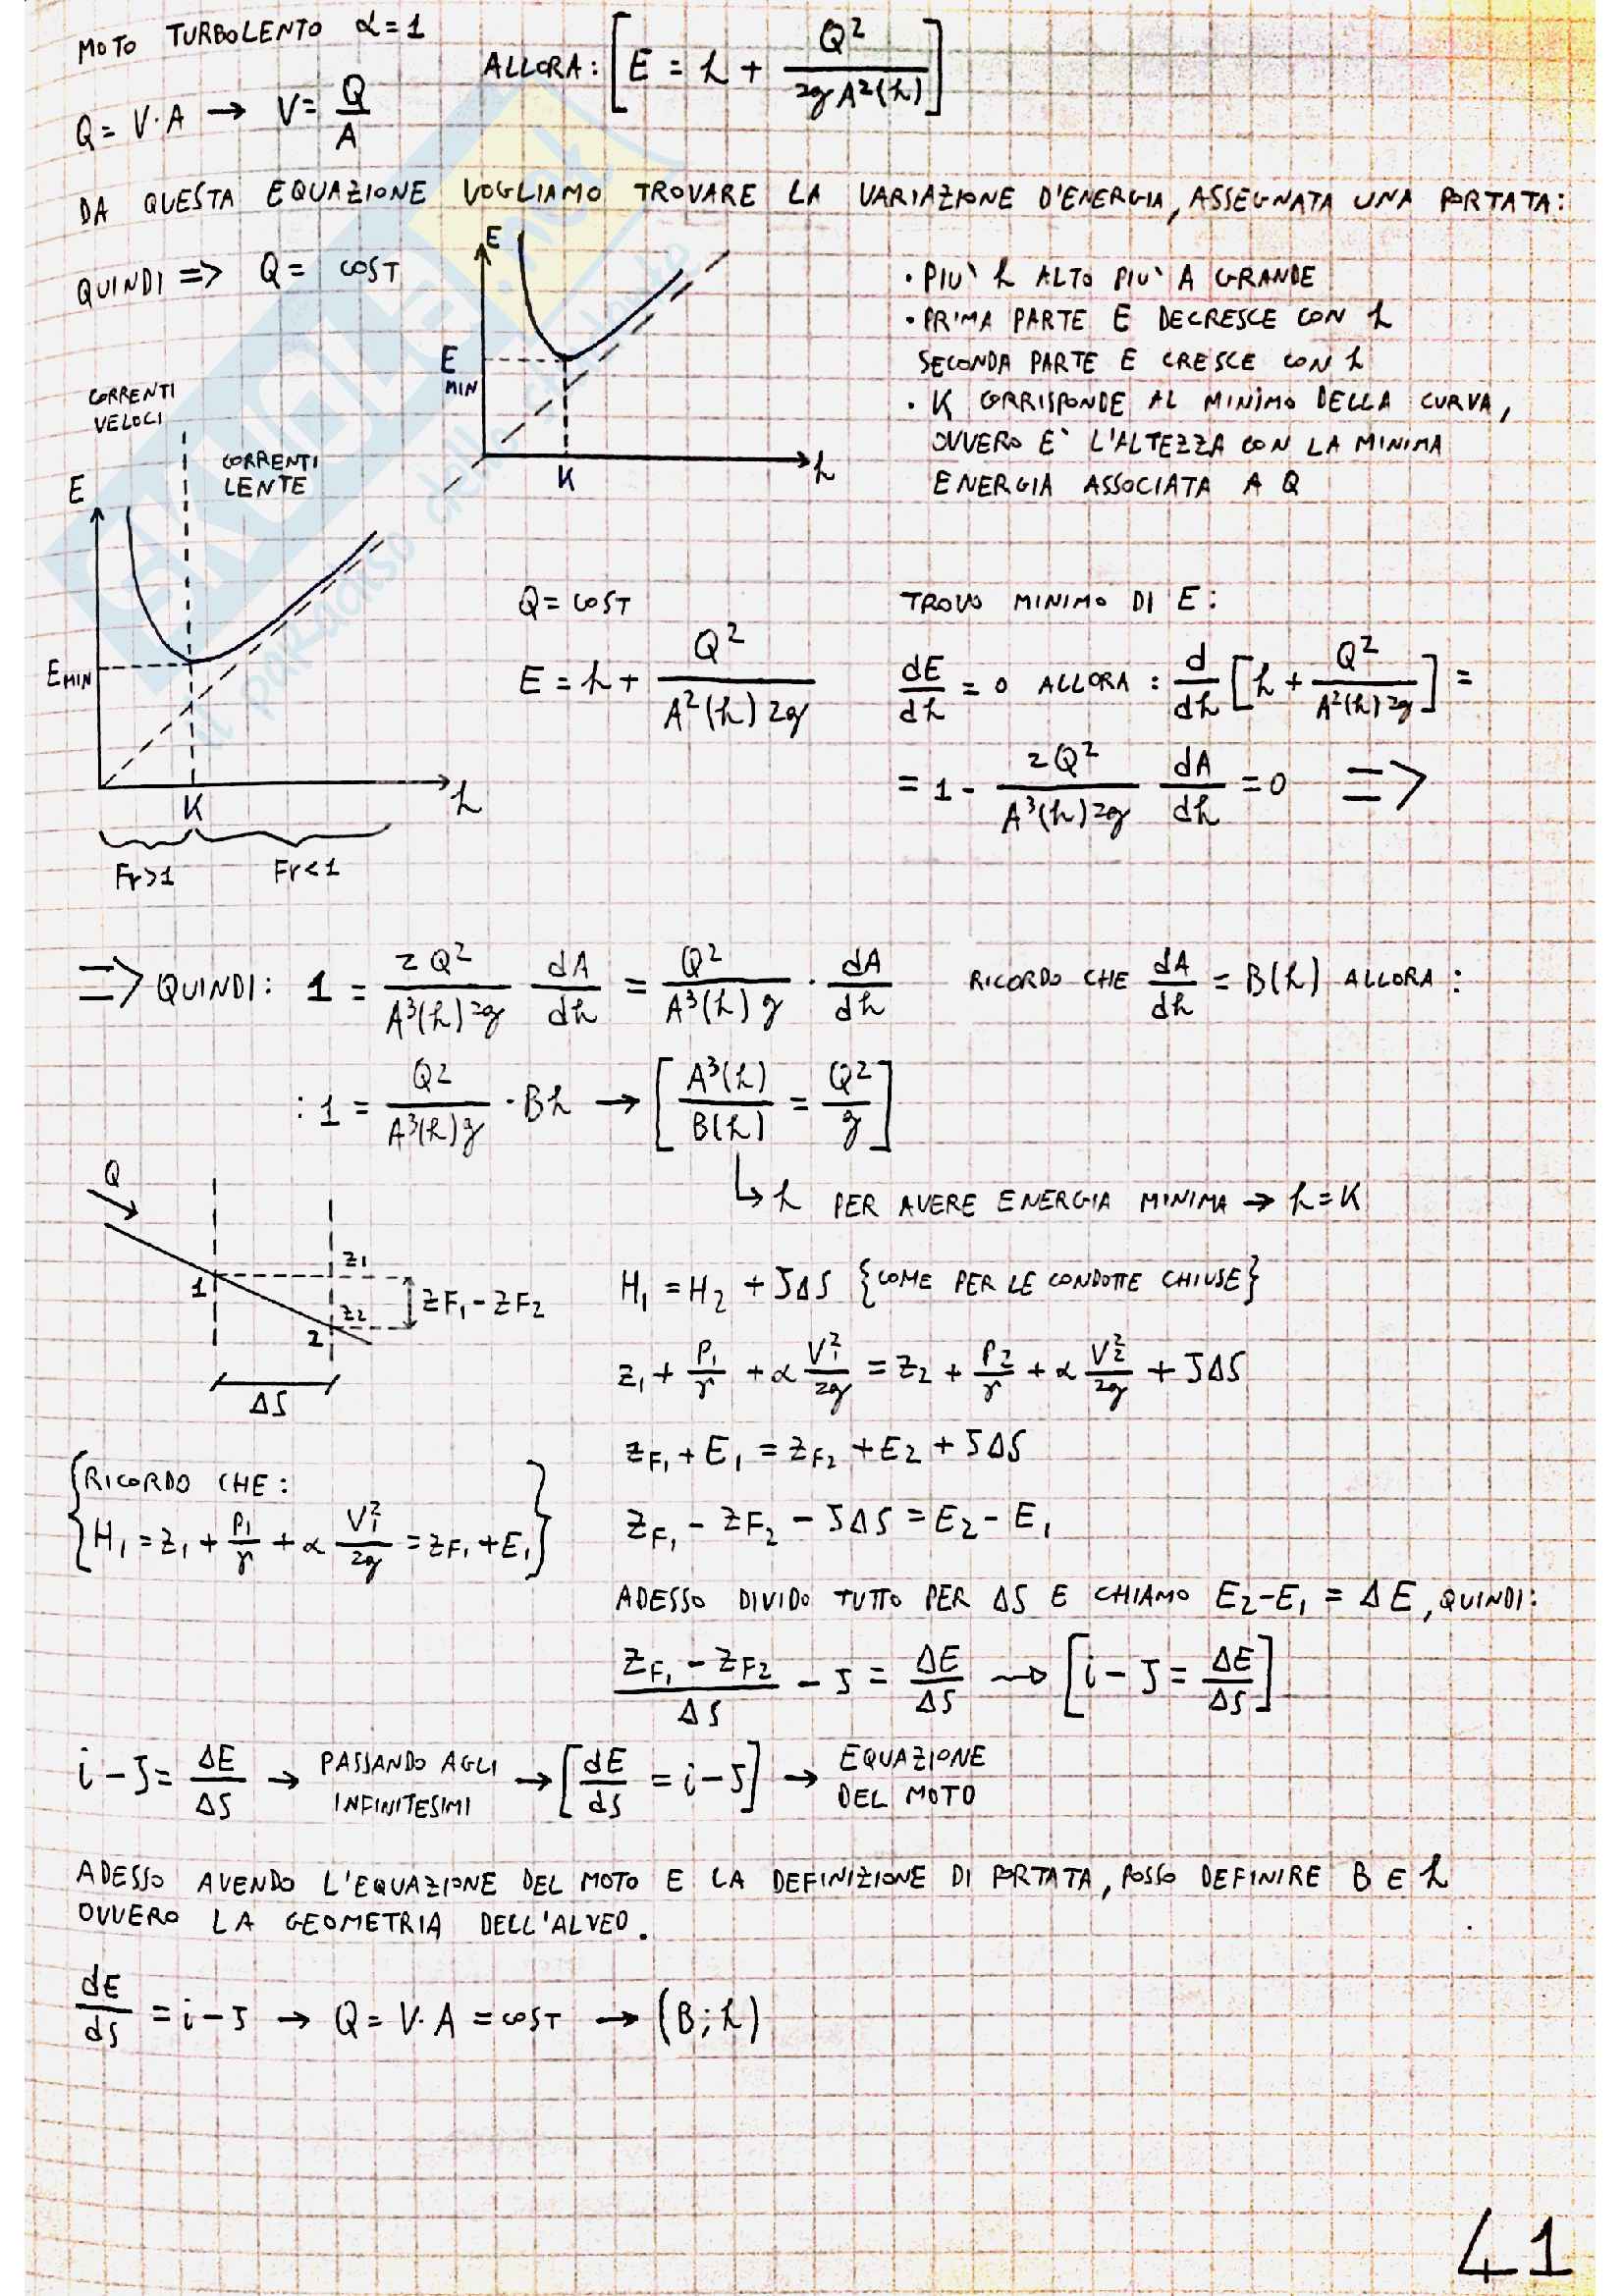 MOTO TURBOLENTO α=1
ALLORA: [E = h + Q²/(2g A²(h))]
Q = V·A → V = Q/A
DA QUESTA EQUAZIONE VOGLIAMO TROVARE LA VARIAZIONE D'ENERGIA, ASSEGNATA UNA PORTATA:
QUINDI => Q = COST
E
E MIN
K
h
• PIU` h ALTO PIU` A GRANDE
• PRIMA PARTE E DECRESCE CON h
SECONDA PARTE E CRESCE CON h
• K CORRISPONDE AL MINIMO DELLA CURVA,
OVVERO E` L'ALTEZZA CON LA MINIMA
ENERGIA ASSOCIATA A Q
CORRENTI
VELOCI
CORRENTI
LENTE
E
E MIN
K
h
Fr>1
Fr<1
Q = COST
E = h + Q²/(A²(h) 2g)
TROVO MINIMO DI E:
dE/dh = 0 ALLORA : d/dh [h + Q²/(A²(h) 2g)] =
= 1 - 2Q²/(A³(h) 2g) dA/dh = 0 =>
=> QUINDI: 1 = 2Q²/(A³(h) 2g) dA/dh = Q²/(A³(h) g) · dA/dh
RICORDO CHE dA/dh = B(h) ALLORA :
: 1 = Q²/(A³(h) g) · Bh → [A³(h)/B(h) = Q²/g]
↳ h PER AVERE ENERGIA MINIMA → h = K
Q
1
z1
z2
2
zF₁ - zF₂
ΔS
H₁ = H₂ + JΔS {COME PER LE CONDOTTE CHIUSE}
z₁ + P₁/γ + α V₁²/2g = z₂ + P₂/γ + α V₂²/2g + JΔS
zF₁ + E₁ = zF₂ + E₂ + JΔS
zF₁ - zF₂ - JΔS = E₂ - E₁
{RICORDO CHE:
H₁ = z₁ + P₁/γ + α V₁²/2g = zF₁ + E₁}
ADESSO DIVIDO TUTTO PER ΔS E CHIAMO E₂-E₁ = ΔE, QUINDI:
(zF₁ - zF₂)/ΔS - J = ΔE/ΔS → [i - J = ΔE/ΔS]
i - J = ΔE/ΔS → PASSANDO AGLI INFINITESIMI → [dE/ds = i - J] → EQUAZIONE DEL MOTO
ADESSO AVENDO L'EQUAZIONE DEL MOTO E LA DEFINIZIONE DI PORTATA, POSSO DEFINIRE B E h
OVVERO LA GEOMETRIA DELL'ALVEO.
dE/ds = i - J → Q = V·A = COST → (B; h)
41